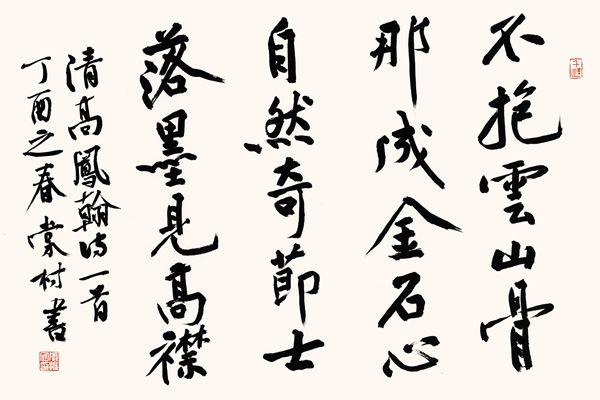 不抱雲山骨
那成金石心
自然奇節士
落墨見高襟
清高鳳翰诗一首
丁酉之春棠村書